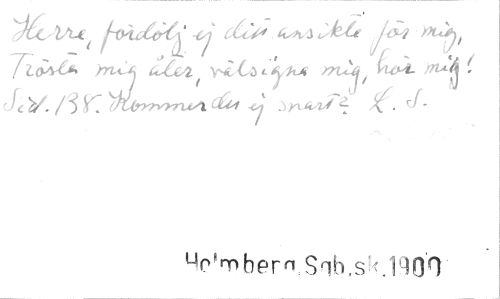 Herre, fördölj ej ditt ansikte för mig,
Trösta mig åter, välsigna mig, hör mig!
Sid. 138. Kommer du ej snart? L. S.
Holmberg, Sgb, sk, 1900